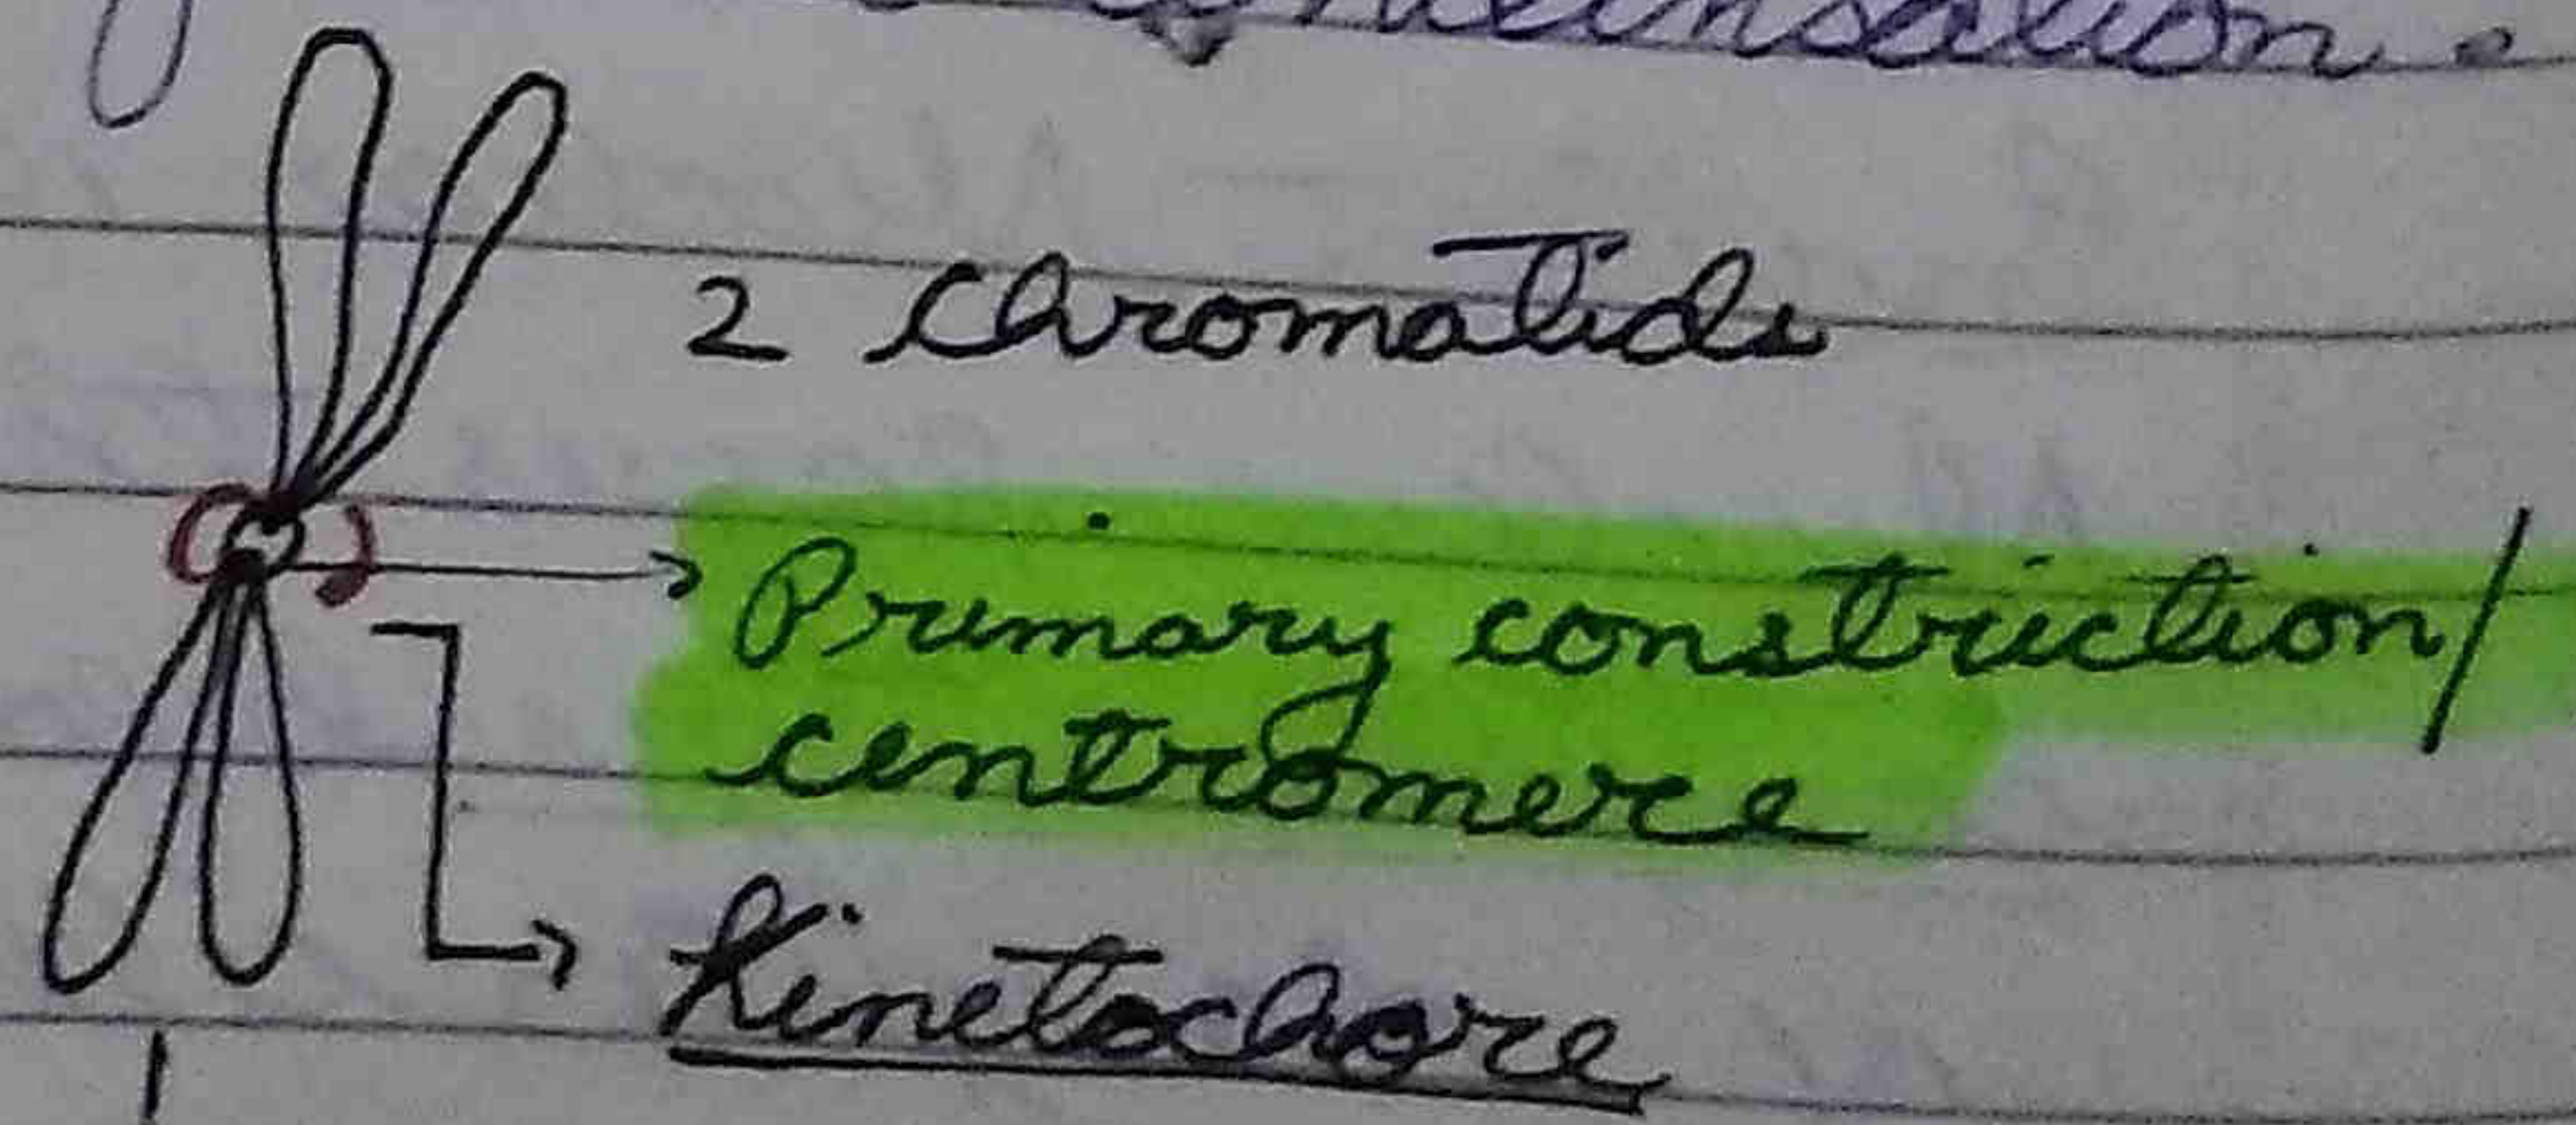 2 chromatids
Primary constriction/
centromere
Kinetochore